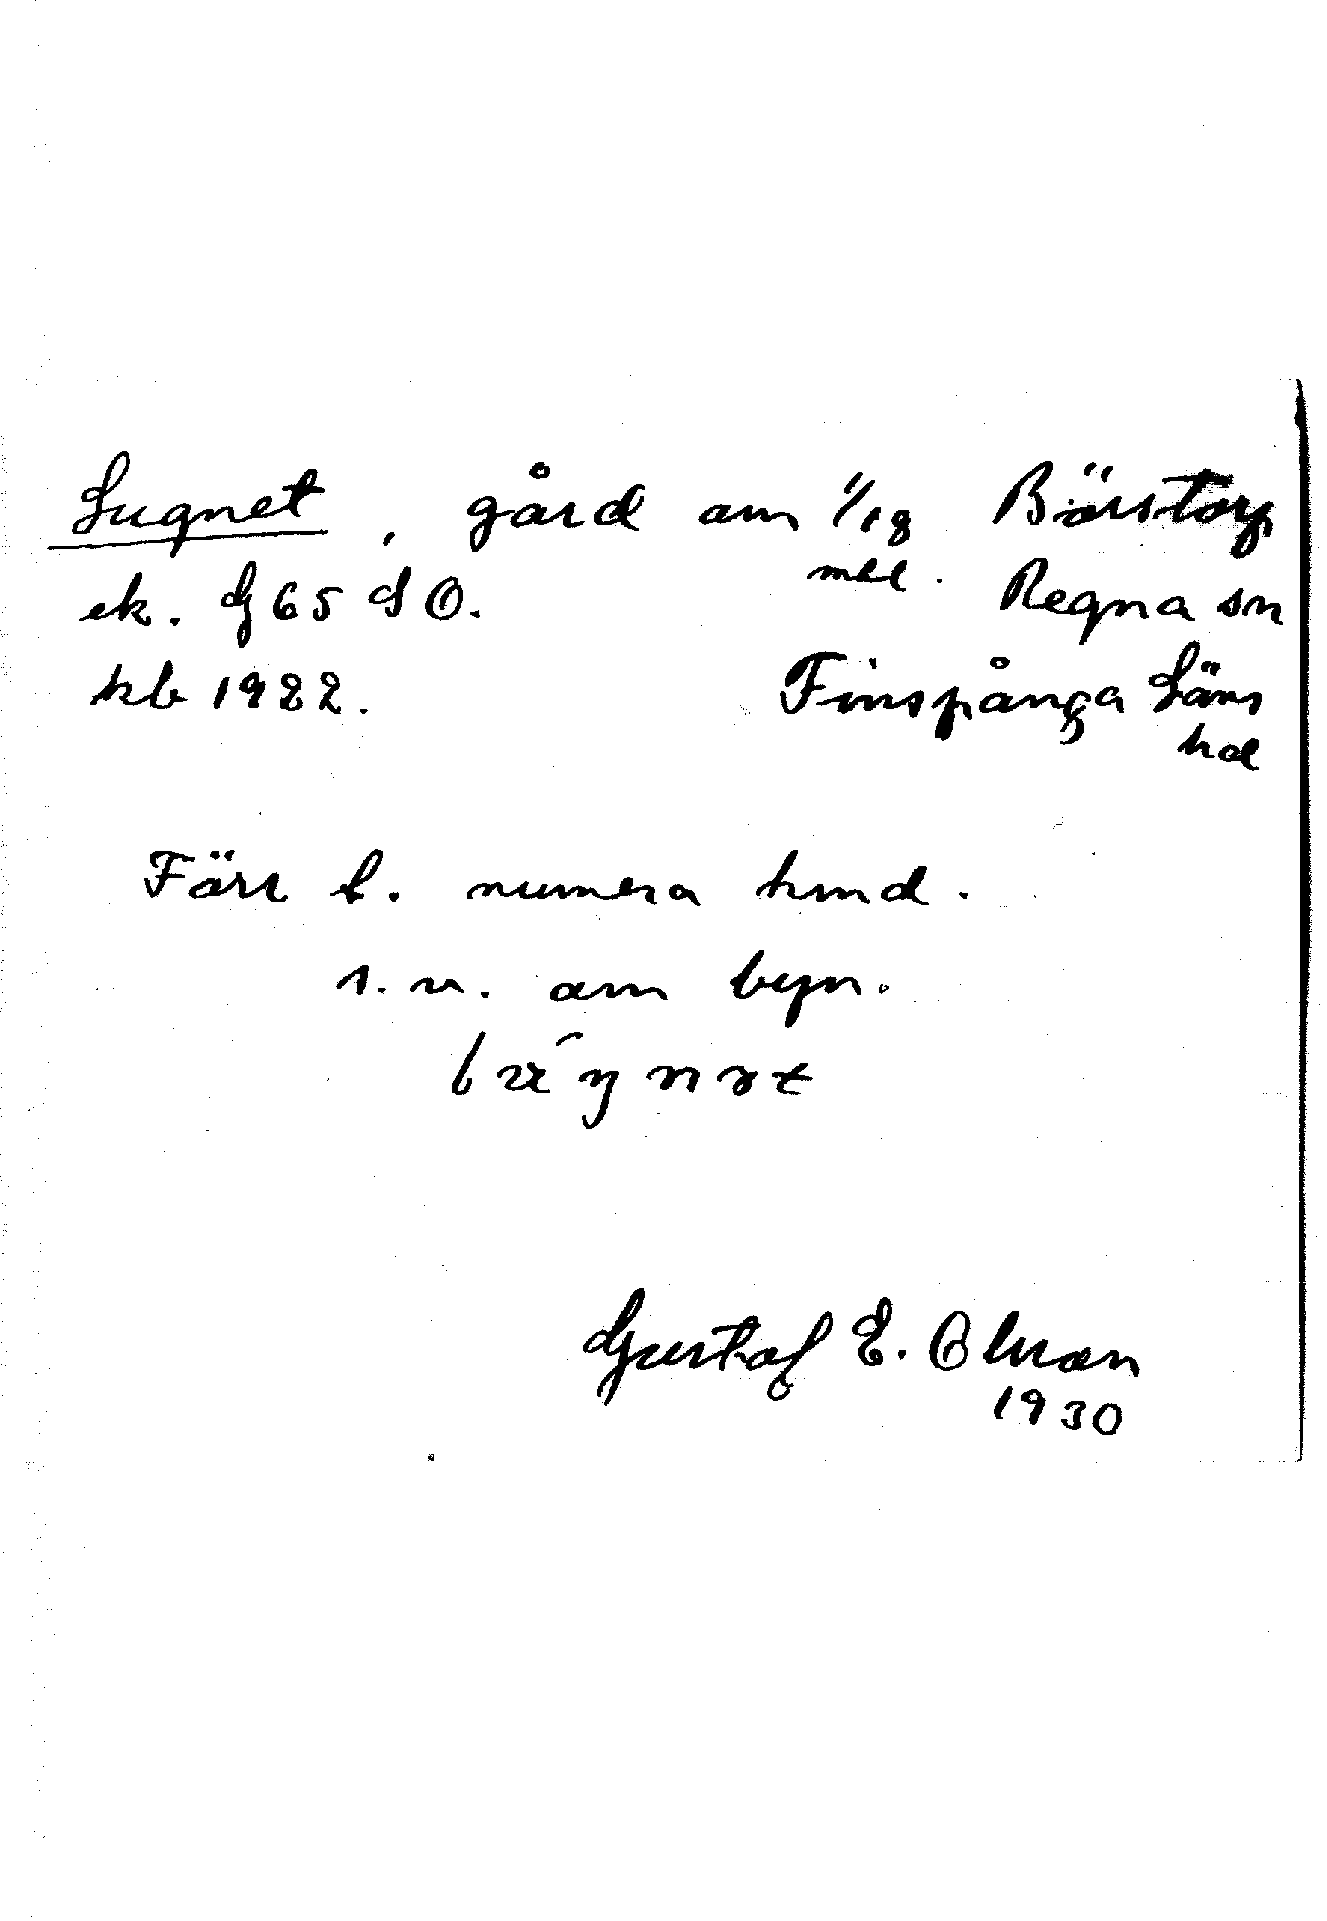 Lugnet, gård om 1/18 Börstorp
ek. G 65 d Ö. mtl. Regna sn
kb 1922. Finspånga Läns
hd
Förr t. numera hmd.
s.v. om byn.
Gustaf E. Olsson
1930